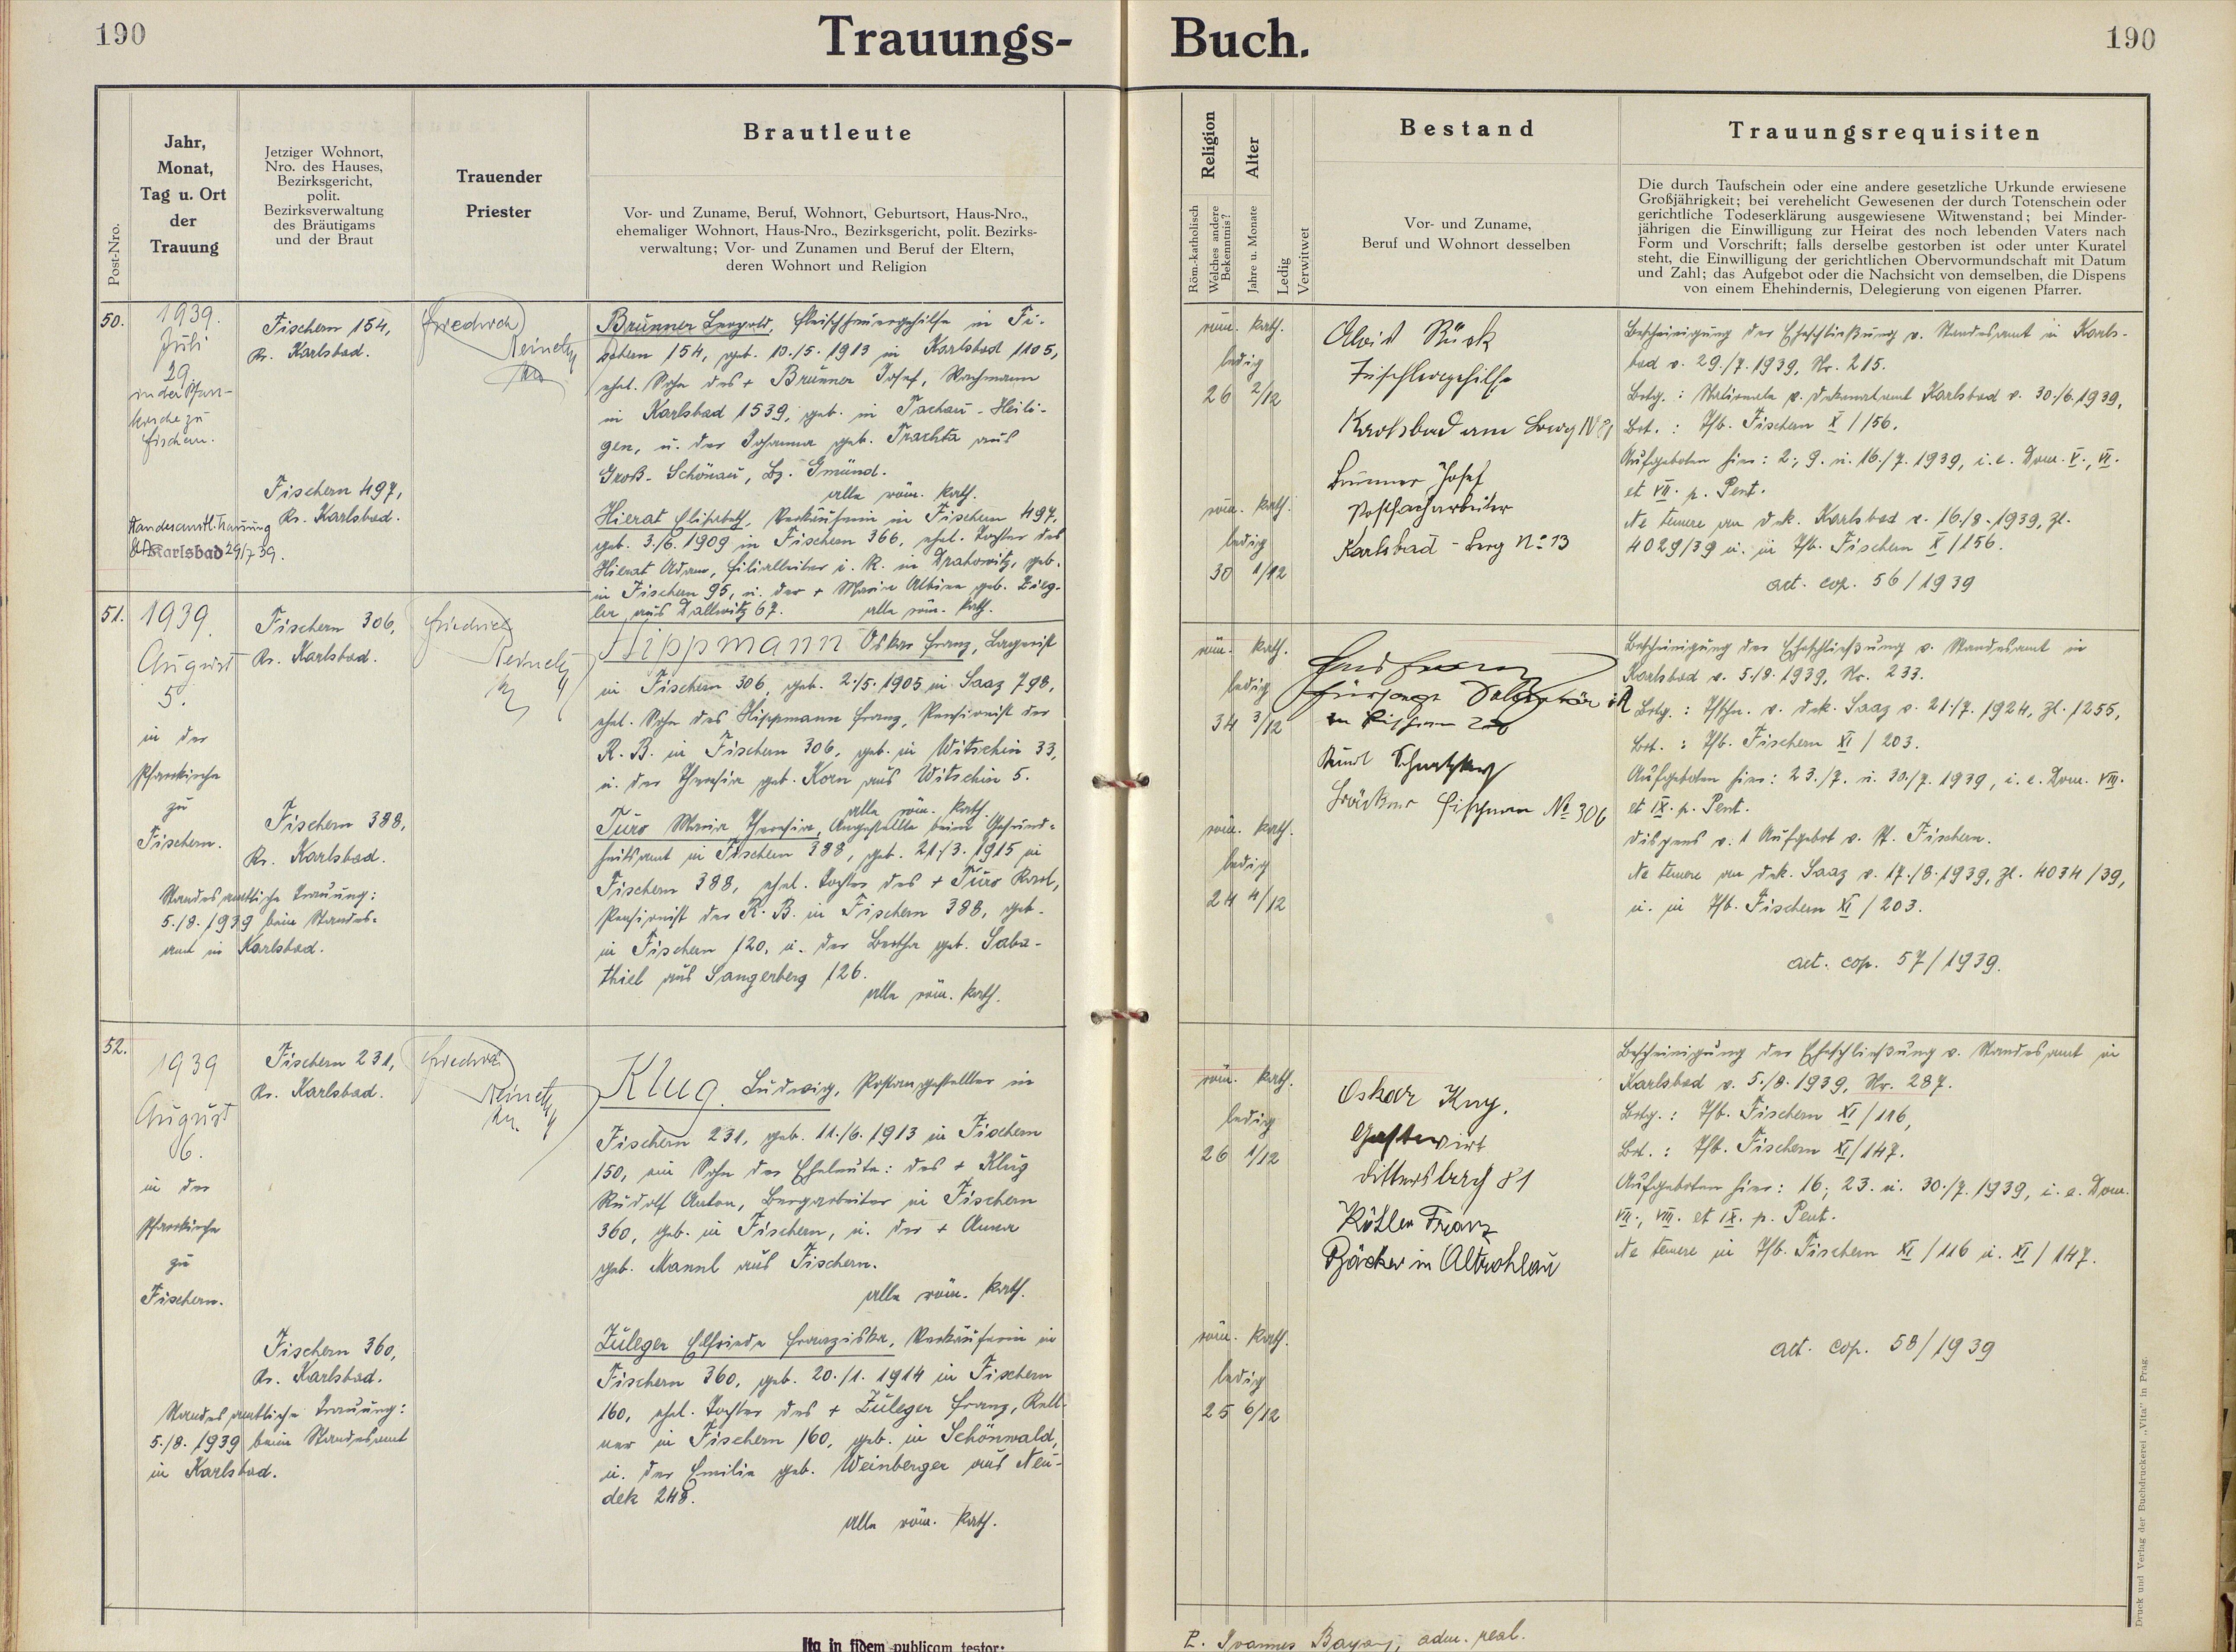 190
Trauungs-
Buch.
190
Post-Nro.
Jahr,
Monat,
Tag u. Ort
der
Trauung
Jetziger Wohnort,
Nro. des Hauses,
Bezirksgericht,
polit.
Bezirksverwaltung
des Bräutigams
und der Braut
Trauender
Priester
Brautleute
Vor- und Zuname, Beruf, Wohnort, Geburtsort, Haus-Nro.,
ehemaliger Wohnort, Haus-Nro., Bezirksgericht, polit. Bezirks-
verwaltung; Vor- und Zunamen und Beruf der Eltern,
deren Wohnort und Religion
Religion
Röm.-katholisch
Welches andere
Bekenntnis?
Alter
Jahre u. Monate
Ledig
Verwitwet
Bestand
Vor- und Zuname,
Beruf und Wohnort desselben
Trauungsrequisiten
Die durch Taufschein oder eine andere gesetzliche Urkunde erwiesene
Großjährigkeit; bei verehelicht Gewesenen der durch Totenschein oder
gerichtliche Todeserklärung ausgewiesene Witwenstand; bei Minder-
jährigen die Einwilligung zur Heirat des noch lebenden Vaters nach
Form und Vorschrift; falls derselbe gestorben ist oder unter Kuratel
steht, die Einwilligung der gerichtlichen Obervormundschaft mit Datum
und Zahl; das Aufgebot oder die Nachsicht von demselben, die Dispens
von einem Ehehindernis, Delegierung von eigenen Pfarrer.
50.
1939.
Juli
29.
in der Pfarr-
kirche zu
Fischern.
Standesamtl. Trauung
Karlsbad 29/7 39.
Fischern 154,
Kr. Karlsbad.
Fischern 497,
Kr. Karlsbad.
Friedrich
Brunner Leopold, Fleischhauergehilfe in Fi-
schern 154, geb. 10./5. 1913 in Karlsbad 1105,
ehel. Sohn des + Brunner Josef, Wachmann
in Karlsbad 1539, geb. in Tachau - Heili-
gen, u. der Johanna geb. Trachta aus
Groß-Schönau, Bz. Gmünd.
alle röm. kath.
Hierat Elisabeth, Verkäuferin in Fischern 497,
geb. 3./6. 1909 in Fischern 366, ehel. Tochter des
Hierat Adam, Filialleiter i. R. in Drahowitz, geb.
in Fischern 95, u. der + Maria Albine geb. Zieg-
ler aus Dallwitz 67. alle röm. kath.
röm. kath.
ledig
26 2/12
röm. kath.
ledig
30 1/12
Alois
Tischlergehilfe
Karlsbad am Berg
Brunner Josef
Karlsbad - Berg No 13
Bescheinigung der Eheschließung v. Standesamt in Karls-
bad v. 29./7. 1939, Nr. 215.
Brtg.: v. Dekanatamt Karlsbad v. 30./6. 1939,
Brt.: Tfb. Fischern X / 156.
Aufgeboten hier: 2., 9. u. 16./7. 1939, i. e. Dom. V., VI.
et VII. p. Pent.
Ne temere an Dek. Karlsbad v. 16./8. 1939, Zl.
4029/39 u. in Tfb. Fischern X / 156.
act. cop. 56/1939
51.
1939.
August
5.
in der
Pfarrkirche
zu
Fischern.
Standesamtliche Trauung:
5./8. 1939 beim Standes-
amt in Karlsbad.
Fischern 306,
Kr. Karlsbad.
Fischern 388,
Kr. Karlsbad.
Friedrich
Hippmann Oskar Franz, Lagerist
in Fischern 306, geb. 2./5. 1905 in Saaz 798,
ehel. Sohn des Hippmann Franz, Pensionist der
R. B. in Fischern 306, geb. in Witschin 33,
u. der Theresia geb. Korn aus Witschin 5.
alle röm. kath.
Türo Maria Theresia, Angestellte beim Gesund-
heitsamt in Fischern 388, geb. 21./3. 1915 in
Fischern 388, ehel. Tochter des + Türo Karl,
Pensionist der R. B. in Fischern 388, geb.
in Fischern 120, u. der Bertha geb. Saba-
thiel aus Sangerberg 126.
alle röm. kath.
röm. kath.
ledig
34 3/12
röm. kath.
ledig
24 4/12
Fischern No 306
Bescheinigung der Eheschließung v. Standesamt in
Karlsbad v. 5./8. 1939, Nr. 233.
Brtg.: Tfschn. v. Dek. Saaz v. 21./7. 1924, Zl. 1255,
Brt.: Tfb. Fischern XI / 203.
Aufgeboten hier: 23./7. u. 30./7. 1939, i. e. Dom. VIII.
et IX. p. Pent.
Dispens v. 1 Aufgebot v. Fischern.
Ne temere an Dek. Saaz v. 17./8. 1939, Zl. 4034/39,
u. in Tfb. Fischern XI / 203.
act. cop. 57/1939.
52.
1939
August
6.
in der
Pfarrkirche
zu
Fischern.
Standesamtliche Trauung:
5./8. 1939 beim Standesamt
in Karlsbad.
Fischern 231,
Kr. Karlsbad.
Fischern 360,
Kr. Karlsbad.
Friedrich
Klug Ludwig, Postangestellter in
Fischern 231, geb. 11./6. 1913 in Fischern
150, ein Sohn der Eheleute: des + Klug
Rudolf Anton, Bergarbeiter in Fischern
360, geb. in Fischern, u. der + Anna
geb. Mannl aus Fischern.
alle röm. kath.
Züleger Elfriede Franziska, Verkäuferin in
Fischern 360, geb. 20./1. 1914 in Fischern
160, ehel. Tochter des + Züleger Franz, Kell-
ner in Fischern 160, geb. in Schönwald,
u. der Emilie geb. Weinberger aus Neu-
dek 248.
alle röm. kath.
röm. kath.
ledig
26 1/12
röm. kath.
ledig
25 6/12
Oskar
Gastwirt
Dittersbach 81
Franz
Bäcker in Altrohlau
Bescheinigung der Eheschließung v. Standesamt in
Karlsbad v. 5./8. 1939, Nr. 287.
Brtg.: Tfb. Fischern XI / 116,
Brt.: Tfb. Fischern XI / 147.
Aufgeboten hier: 16., 23. u. 30./7. 1939, i. e. Dom.
VII., VIII. et IX. p. Pent.
Ne temere in Tfb. Fischern XI / 116 u. XI / 147.
act. cop. 58/1939
Druck und Verlag der Buchdruckerei „Vita" in Prag.
Ita in fidem publicam testor:
adm. paal.